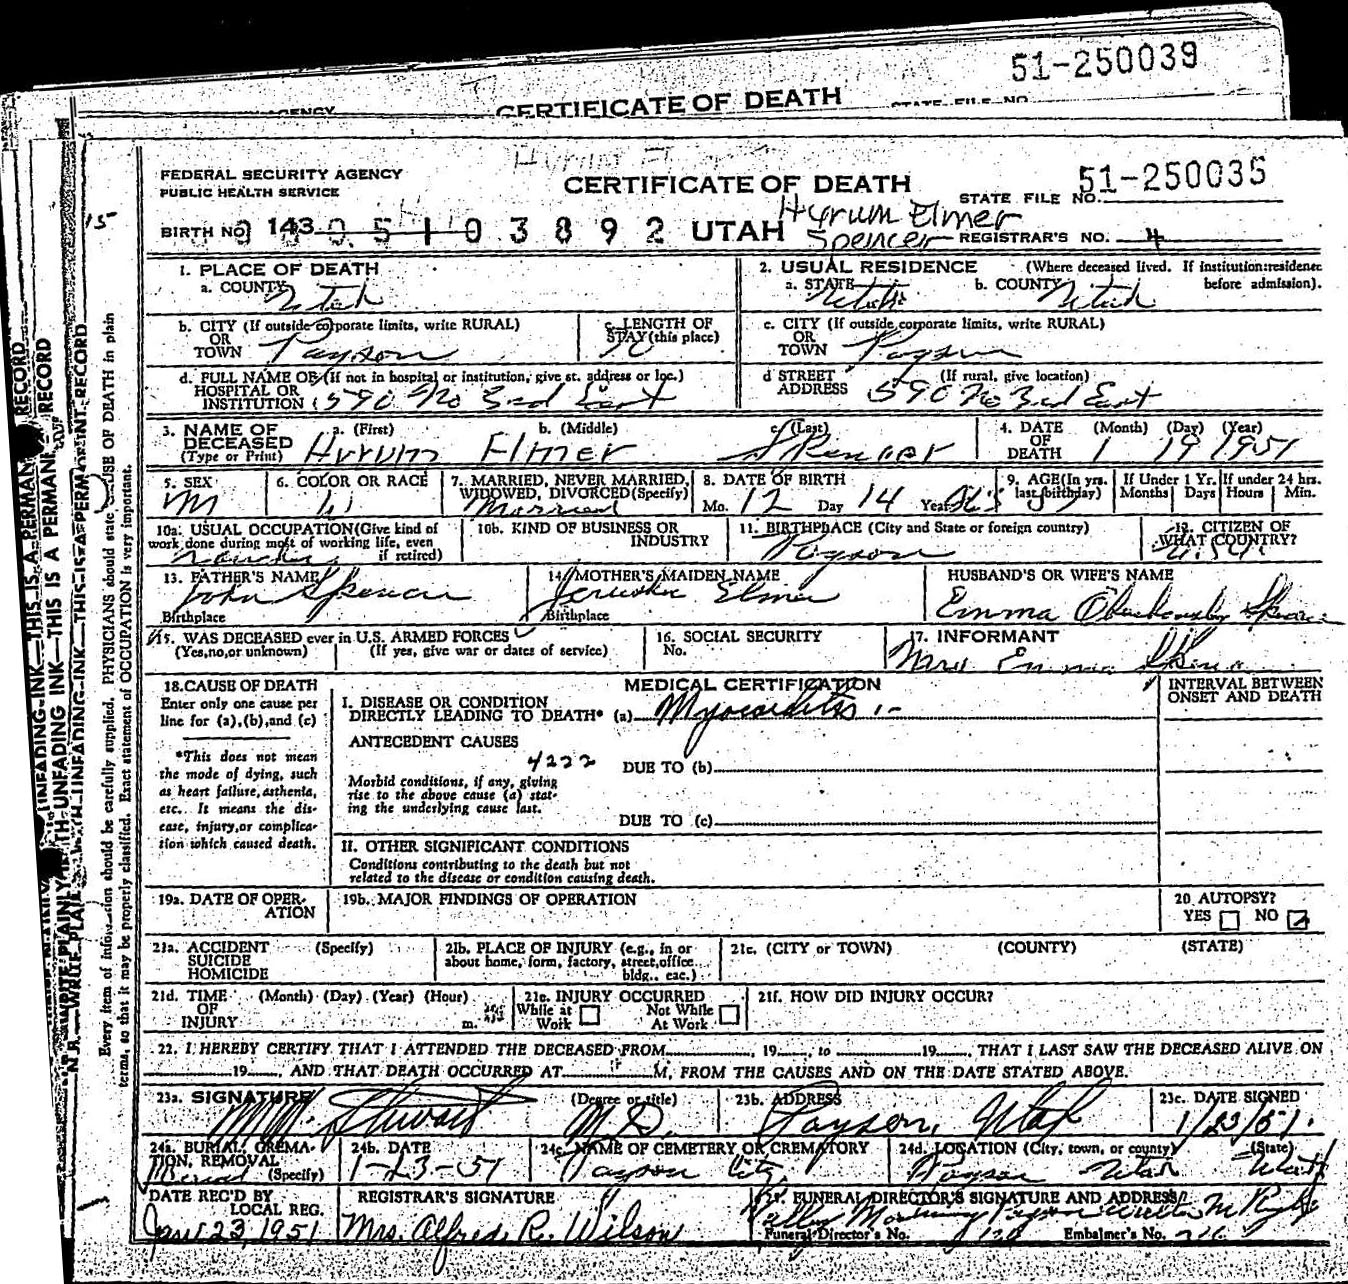 51-250039
AGENCY CERTIFICATE OF DEATH STATE FILE NO.
FEDERAL SECURITY AGENCY
PUBLIC HEALTH SERVICE
CERTIFICATE OF DEATH
STATE FILE NO. 51-250035
15
BIRTH NO. 143 0 5 1 0 3 8 9 2 UTAH Hyrum Elmer Spencer REGISTRAR'S NO. 4
1. PLACE OF DEATH
a. COUNTY Utah
2. USUAL RESIDENCE (Where deceased lived. If institution: residence before admission).
a. STATE Utah b. COUNTY Utah
b. CITY (If outside corporate limits, write RURAL) OR TOWN Payson
c. LENGTH OF STAY (this place)
c. CITY (If outside corporate limits, write RURAL) OR TOWN Payson
d. FULL NAME OF (If not in hospital or institution, give st. address or loc.) HOSPITAL OR INSTITUTION 590 No 3rd East
d STREET ADDRESS (If rural, give location) 590 No 3rd East
3. NAME OF DECEASED (Type or Print)
a. (First) Hyrum b. (Middle) Elmer c. (Last) Spencer
4. DATE OF DEATH (Month) (Day) (Year) 1 19 1951
5. SEX M
6. COLOR OR RACE W
7. MARRIED, NEVER MARRIED, WIDOWED, DIVORCED (Specify) Married
8. DATE OF BIRTH Mo. 12 Day 14 Year
9. AGE (In yrs. last birthday)
If Under 1 Yr. Months Days
If under 24 hrs. Hours Min.
10a. USUAL OCCUPATION (Give kind of work done during most of working life, even if retired)
10b. KIND OF BUSINESS OR INDUSTRY
11. BIRTHPLACE (City and State or foreign country) Payson
12. CITIZEN OF WHAT COUNTRY? U.S.A.
13. FATHER'S NAME John Spencer
Birthplace
14. MOTHER'S MAIDEN NAME Jerusha Elmer
Birthplace
HUSBAND'S OR WIFE'S NAME
Emma
15. WAS DECEASED ever in U.S. ARMED FORCES
(Yes, no, or unknown) (If yes, give war or dates of service)
16. SOCIAL SECURITY No.
17. INFORMANT
Mrs Emma Spencer
18. CAUSE OF DEATH
Enter only one cause per line for (a), (b), and (c)
*This does not mean the mode of dying, such as heart failure, asthenia, etc. It means the disease, injury, or complication which caused death.
MEDICAL CERTIFICATION
INTERVAL BETWEEN ONSET AND DEATH
I. DISEASE OR CONDITION DIRECTLY LEADING TO DEATH* (a) Myocarditis
ANTECEDENT CAUSES
4222
DUE TO (b)
Morbid conditions, if any, giving rise to the above cause (a) stating the underlying cause last.
DUE TO (c)
II. OTHER SIGNIFICANT CONDITIONS
Conditions contributing to the death but not related to the disease or condition causing death.
19a. DATE OF OPERATION
19b. MAJOR FINDINGS OF OPERATION
20. AUTOPSY?
YES NO
21a. ACCIDENT SUICIDE HOMICIDE (Specify)
21b. PLACE OF INJURY (e.g., in or about home, form, factory, street, office bldg., eac.)
21c. (CITY or TOWN) (COUNTY) (STATE)
21d. TIME OF INJURY (Month) (Day) (Year) (Hour) m.
21e. INJURY OCCURRED
While at Work Not While At Work
21f. HOW DID INJURY OCCUR?
22. I HEREBY CERTIFY THAT I ATTENDED THE DECEASED FROM , 19 , to 19 , THAT I LAST SAW THE DECEASED ALIVE ON
19 , AND THAT DEATH OCCURRED AT M, FROM THE CAUSES AND ON THE DATE STATED ABOVE.
23a. SIGNATURE Stewart (Degree or title) M.D.
23b. ADDRESS Payson, Utah
23c. DATE SIGNED 1/23/51.
24a. BURIAL, CREMATION, REMOVAL (Specify) Burial
24b. DATE 1-23-51
24c. NAME OF CEMETERY OR CREMATORY Payson City
24d. LOCATION (City, town, or county) (State) Payson Utah Utah
DATE REC'D BY LOCAL REG. Jan 23, 1951
REGISTRAR'S SIGNATURE
Mrs. Alfred R. Wilson
25. FUNERAL DIRECTOR'S SIGNATURE AND ADDRESS
Valley Mortuary Payson
Funeral Director's No. Embalmer's No.
N.B.—WRITE PLAINLY WITH UNFADING INK—THIS IS A PERMANENT RECORD
Every item of information should be carefully supplied. PHYSICIANS should state CAUSE OF DEATH in plain
terms, so that it may be properly classified. Exact statement of OCCUPATION is very important.